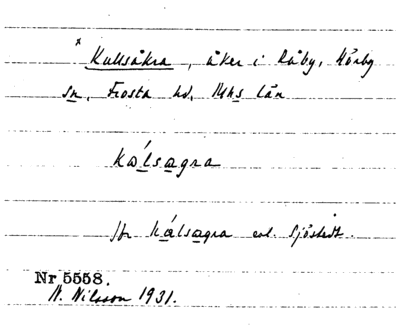 × Kullsåkra, åker i Råby, Hörby
sn, Frosta hd, Mhs län
Kålsagra
jfr kálsagra enl. Sjöstedt.
Nr 5558.
N. Nilsson 1931.